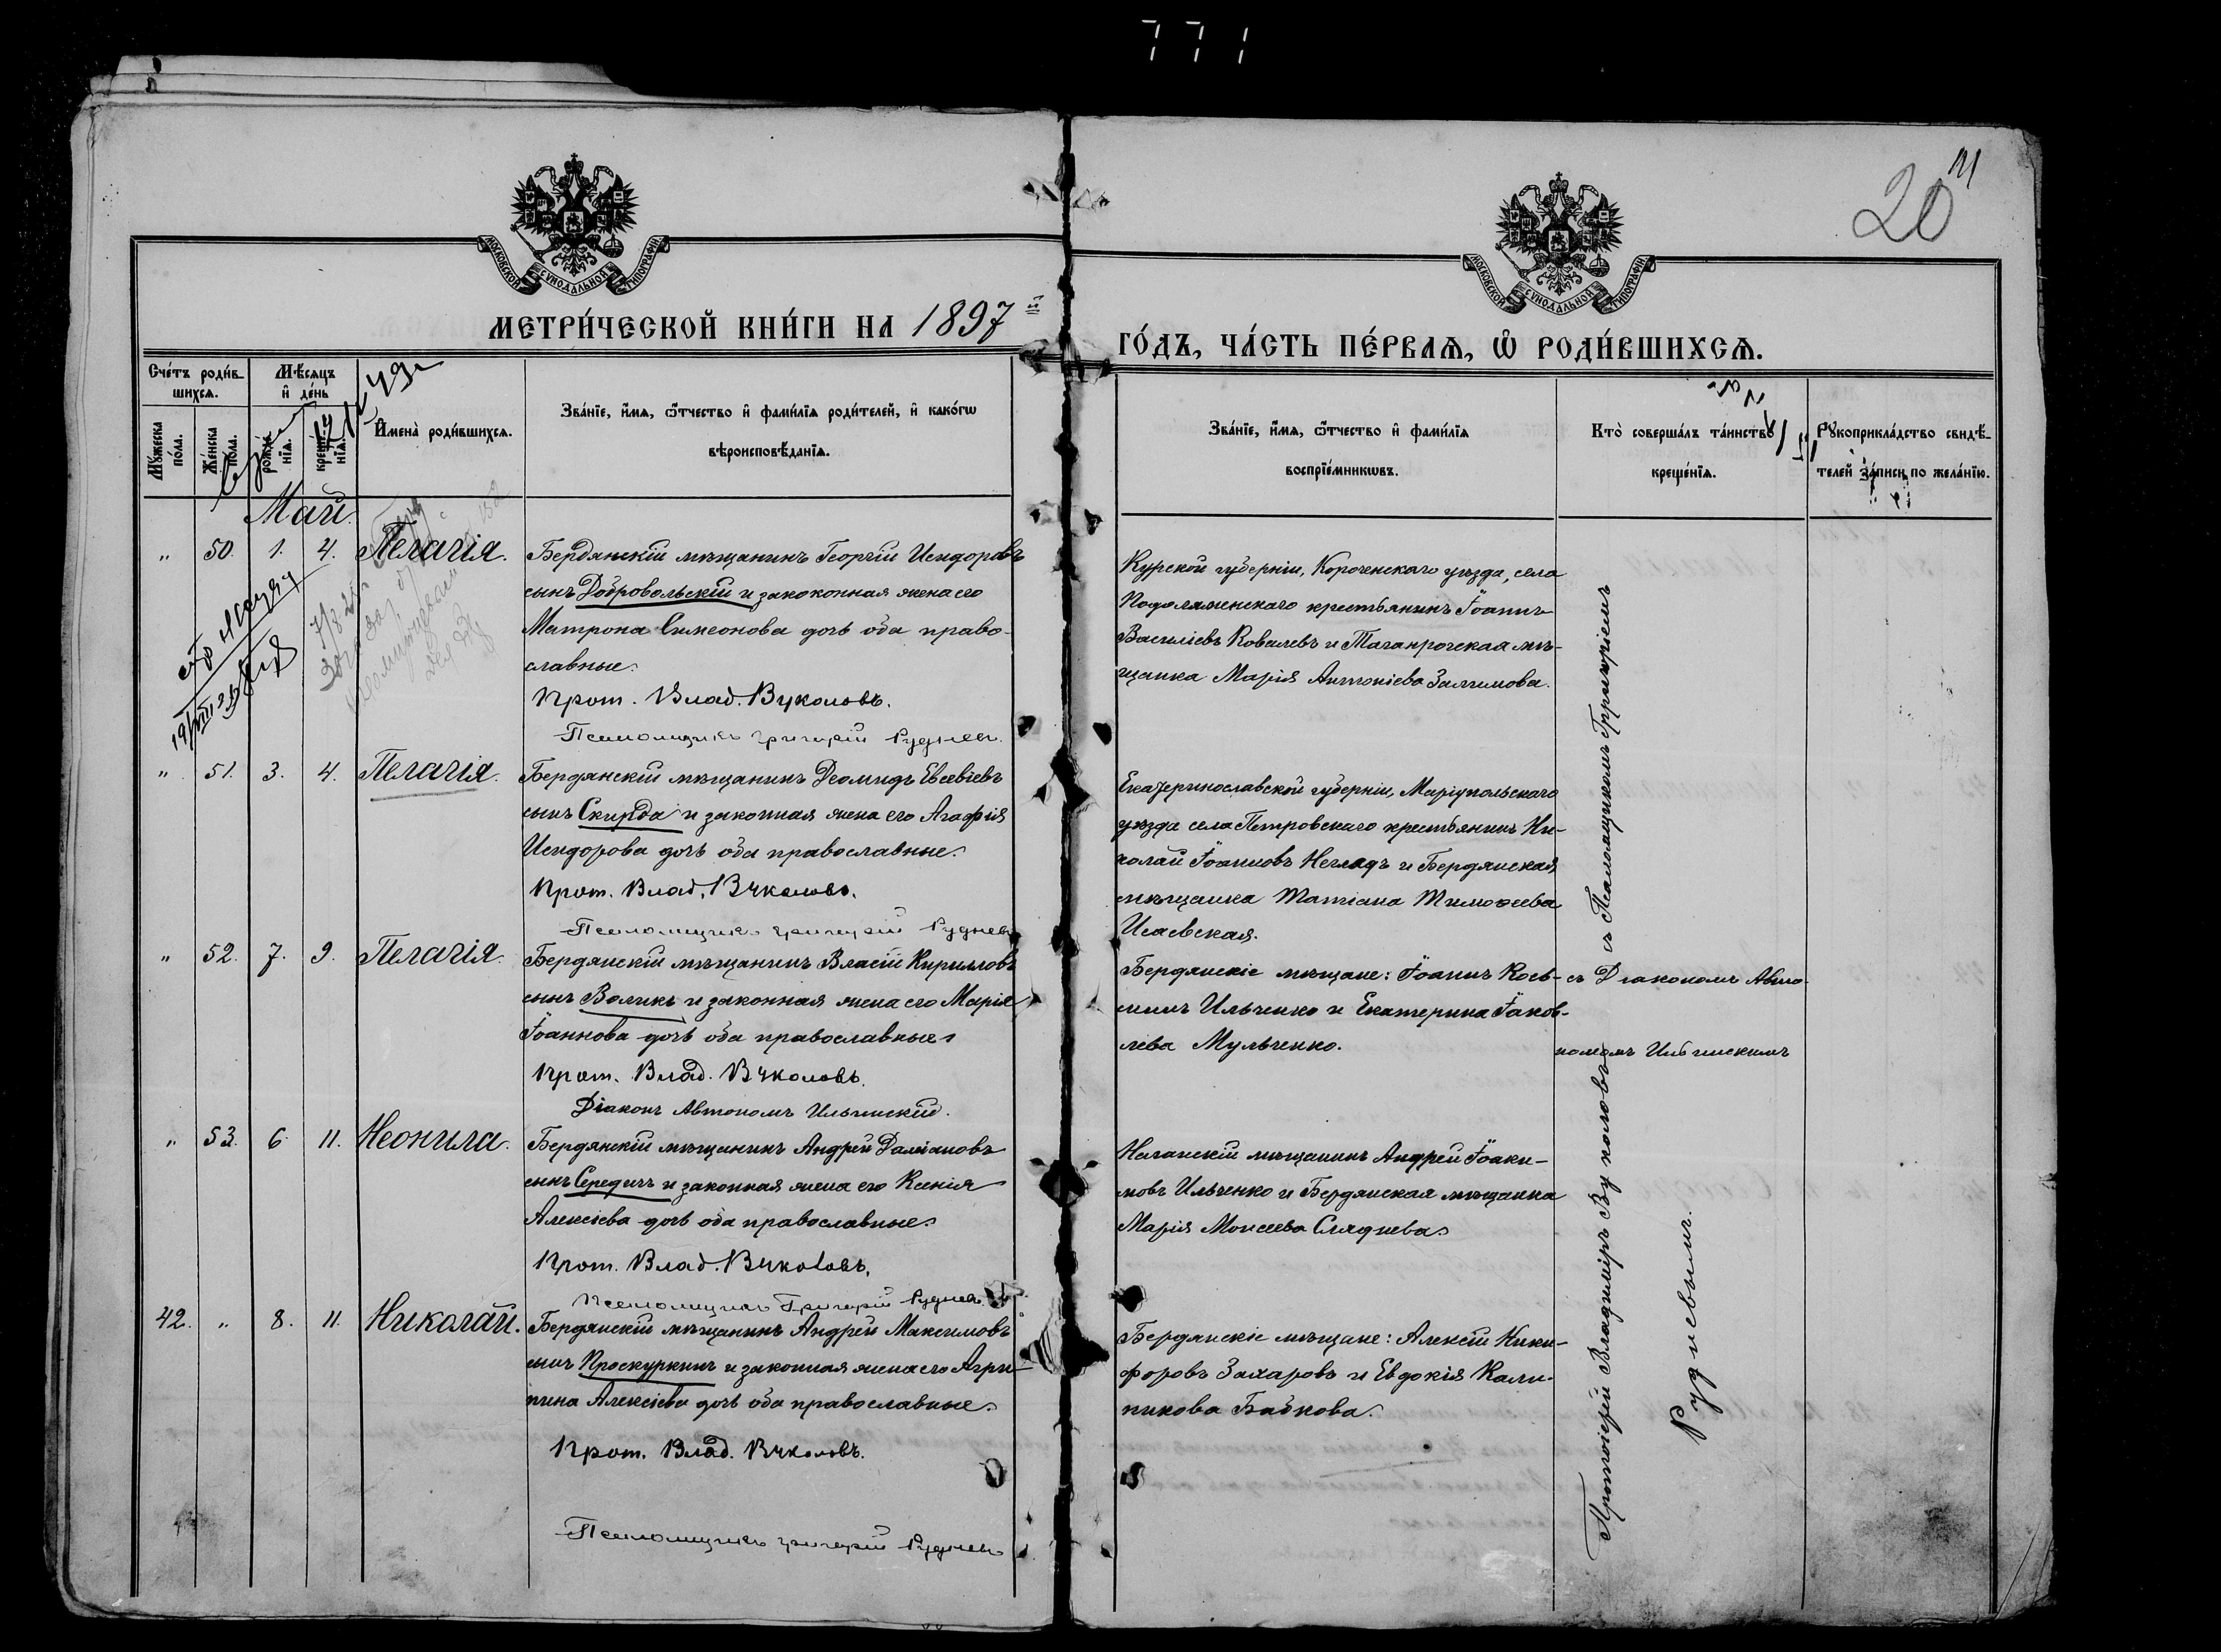 771
20
МОСКОВСКОЙ СѴНОДАЛЬНОЙ ТИПОГРАФІИ
МОСКОВСКОЙ СѴНОДАЛЬНОЙ ТИПОГРАФІИ
МЕТРИ́ЧЕСКОЙ КНИ́ГИ НА 1897 й
ГО́ДЪ, ЧА́СТЬ ПЕ́РВАЯ, Ѿ РОДИ́ВШИХСЯ.
Сче́тъ роди́вшихся.
Мѣ́сяцъ и҆ де́нь
Мꙋжеска по́ла.
Же́нска по́ла.
рожде́нїя.
креще́нїя.
И҆мена̀ роди́вшихся.
Зва́нїе, и҆́мя, ѻ҆́тчество и҆ фами́лїя роди́телей, и҆ како́гѡ
вѣроисповѣ́данїя.
Зва́нїе, и҆́мя, ѻ҆́тчество и҆ фами́лїя
воспрїе́мникѡвъ.
Кто̀ соверша́лъ та́инство
креще́нїя.
Рꙋкоприкла́дство свидѣ́-
телей за́писи по жела́нїю.
Май.
„ 50. 1. 4. Пелагія.
Бердянскій мѣщанинъ Георгій Исидоровъ
сынъ Добровольскій и закоконная жена его
Матрона Симеонова дочь оба право-
славные.
Прот. Влад. Вуколовъ.
Псаломщикъ Григорій Рудневъ
Курской губерніи, Короченскаго уѣзда, села
крестьянинъ Іоаннъ
Василіевъ Ковалевъ и Таганрогская мѣ-
щанка Марія Антоніева
„ 51. 3. 4. Пелагія.
Бердянскій мѣщанинъ Деомидъ Евсевіевъ
сынъ Скирда и законная жена его Агафія
Исидорова дочь оба православные.
Прот. Влад. Вуколовъ.
Псаломщикъ Григорій Рудневъ
Екатеринославской губерніи, Маріупольскаго
уѣзда села Петровскаго крестьянинъ Ни-
колай Іоанновъ Негладъ и Бердянская
мѣщанка Татіана Тимоѳеева
Исаевская.
„ 52. 7. 9. Пелагія.
Бердянскій мѣщанинъ Власій Кирилловъ
сынъ Воликъ и законная жена его Марія
Іоаннова дочь оба православные
Прот. Влад. Вуколовъ.
Діаконъ Автономъ Ильинскій.
Бердянскіе мѣщане: Іоаннъ Козь-
минъ Ильченко и Екатерина Іаков-
лева Мульченко.
съ Діакономъ Авто-
номомъ Ильинскимъ
„ 53. 6. 11. Неонила.
Бердянскій мѣщанинъ Андрей Даміановъ
сынъ Середичъ и законная жена его Ксенія
Алексіева дочь оба православные.
Прот. Влад. Вуколовъ.
Псаломщикъ Григорій Рудневъ
Ногайскій мѣщанинъ Андрей Іоаки-
мовъ Ильченко и Бердянская мѣщанка
Марія Моисеева Сляднева.
42. „ 8. 11. Николай.
Бердянскій мѣщанинъ Андрей Максимовъ
сынъ Проскуркинъ и законная жена его Агри-
пина Алексіева дочь оба православные.
Прот. Влад. Вуколовъ.
Псаломщикъ Григорій Рудневъ
Бердянскіе мѣщане: Алексій Ники-
форовъ Захаровъ и Евдокія Кали-
никова Бабкова.
Протоіерей Владиміръ Вуколовъ съ Псаломщикомъ Григоріемъ
Рудневымъ.